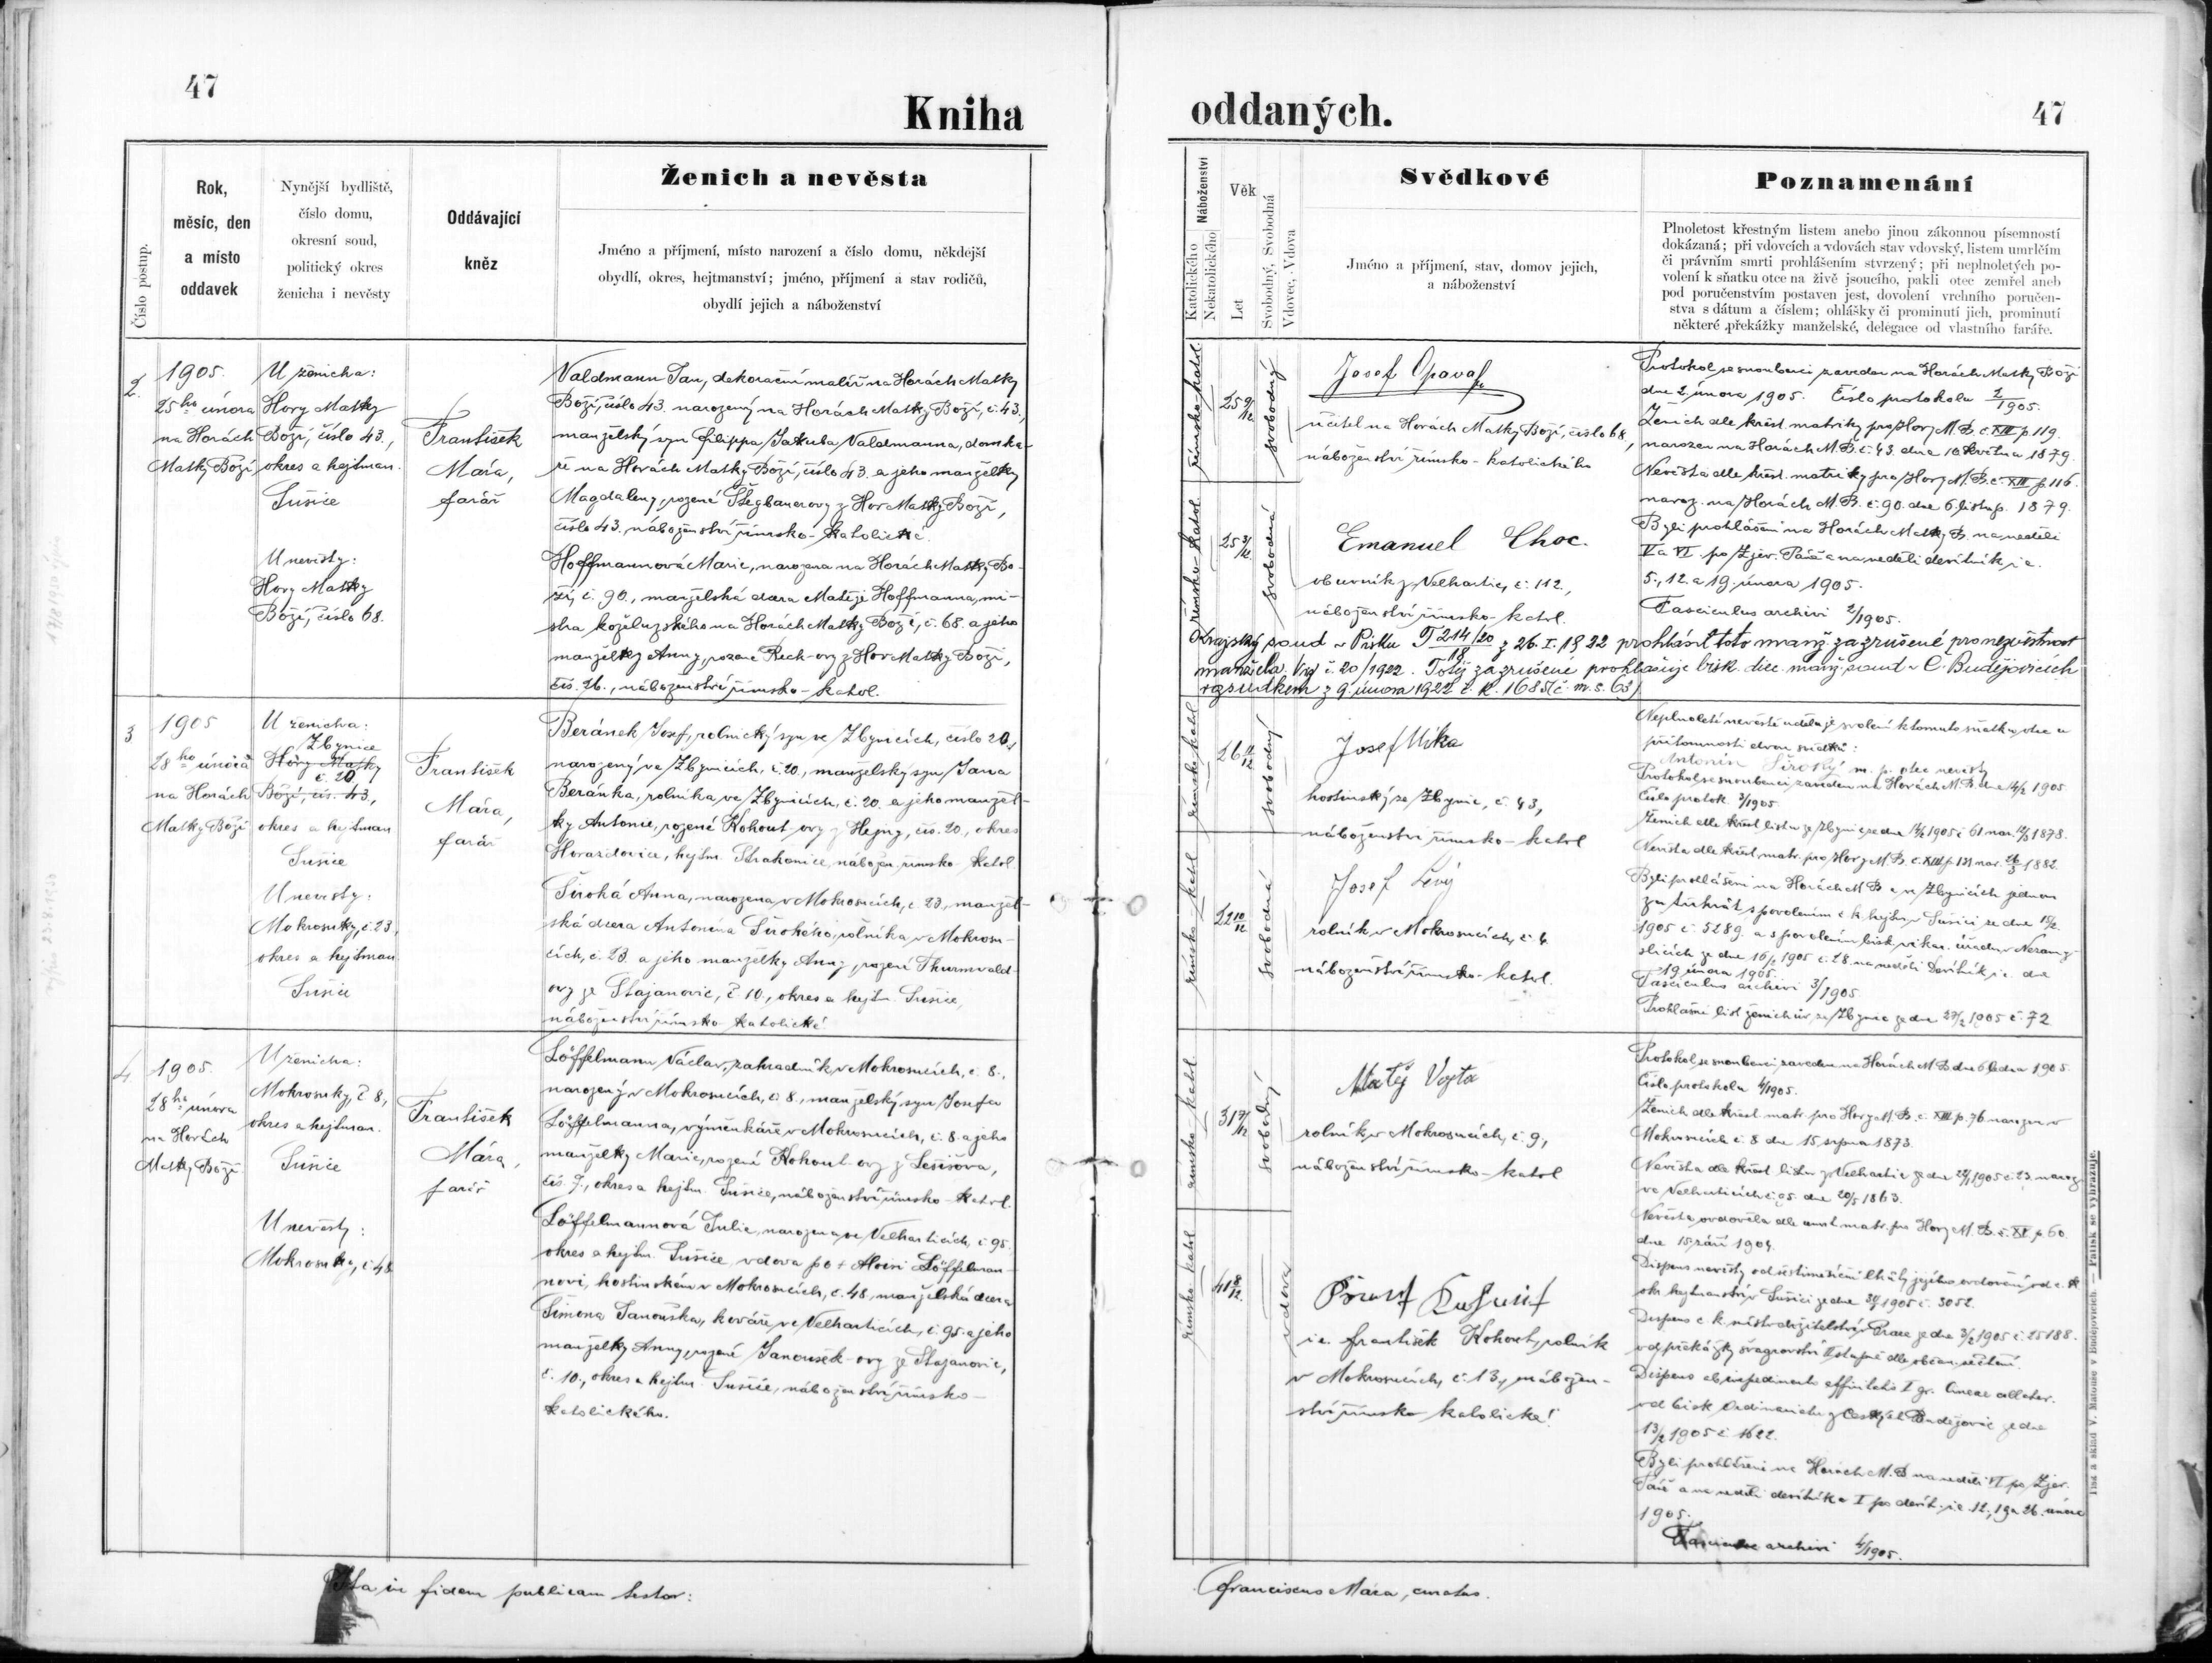 47
Kniha
Číslo postup.
Rok,
měsíc, den
a místo
oddavek
Nynější bydliště,
číslo domu,
okresní soud,
politický okres
ženicha i nevěsty
Oddávající
kněz
Ženich a nevěsta
Jméno a příjmení, místo narození a číslo domu, někdejší
obydlí, okres, hejtmanství; jméno, příjmení a stav rodičů,
obydlí jejich a náboženství
2.
1905.
25ho února
na Horách
Matky Boží
U ženicha:
Hory Matky
Boží, číslo 43.,
okres a hejtman.
Sušice
U nevěsty:
Hory Matky
Boží, číslo 68.
František
Mára,
farář
Valdmann Jan, dekorační malíř na Horách Matky
Boží, číslo 43. narozený na Horách Matky Boží, č. 43.,
manželský syn Filippa Jakuba Valdmanna, domka-
ře na Horách Matky Boží, číslo 43. a jeho manželky
Magdaleny, rozené z Hor Matky Boží,
číslo 43. náboženství římsko-katolické.
Hoffmannová Marie, narozena na Horách Matky Bo-
ží, č. 90., manželská dcera Matěje Hoffmanna, mi-
stra koželužského na Horách Matky Boží, č. 68. a jeho
manželky Anny, rozené Rech-ovy z Hor Matky Boží,
čís. 26., náboženství římsko-katol.
3
1905
28ho února
na Horách
Matky Boží
U ženicha:
Zbynice
Hory Matky
č. 20
Boží, čís. 43,
okres a hejtman
Sušice
U nevěsty:
Mokrosuky, č. 23,
okres a hejtman.
Sušice
František
Mára,
farář
Beránek Josef, rolnický syn ve Zbynicích, číslo 20,
narozený ve Zbynicích, č. 20., manželský syn Jana
Beránka, rolníka ve Zbynicích, č. 20. a jeho manžel-
ky Antonie, rozené Kohout-ovy z Hejny, čís. 20., okres
Horažďovice, hejtm. Strakonice, nábožen. římsko-katol.
Široká Anna, narozena v Mokrosucích, č. 23., manžel-
ská dcera Antonína Širokého, rolníka v Mokrosu-
cích, č. 23. a jeho manželky Anny, rozené Thurnwald-
ovy ze Stajanovic, č. 10., okres a hejtm. Sušice,
náboženství římsko-katolické.
4
1905.
28ho února
na Horách
Matky Boží.
U ženicha:
Mokrosuky, č. 8,
okres a hejtman.
Sušice
U nevěsty:
Mokrosuky, č. 48
František
Mára,
farář
Löffelmann Václav, zahradník v Mokrosucích, č. 8.,
narozený v Mokrosucích, č. 8., manželský syn Josefa
Löffelmanna, výměnkáře v Mokrosucích, č. 8 a jeho
manželky Marie, rozené Kohout-ovy z Lešišova,
čís. 7., okres a hejtm. Sušice, náboženství římsko-katol.
Löffelmannová Julie, narozena ve Velharticích, č. 95.
okres a hejtm. Sušice, vdova po + Aloisi Löffelman-
novi, hostinském v Mokrosucích, č. 48, manželská dcera
Šimona Janouška, kováře ve Velharticích, č. 95. a jeho
manželky Anny, rozené Janoušek-ovy ze Stajanovic,
č. 10., okres a hejtm. Sušice, náboženství římsko-
katolického.
Ita in fidem publicam testor:
47
oddaných.
Náboženství
Katolického
Nekatolického
Věk
Let
Svobodný, Svobodná
Vdovec, Vdova
Svědkové
Jméno a příjmení, stav, domov jejich,
a náboženství
Poznamenání
Plnoletost křestným listem anebo jinou zákonnou písemností
dokázaná; při vdovcích a vdovách stav vdovský, listem umrlčím
či právním smrti prohlášením stvrzený; při neplnoletých po-
volení k sňatku otce na živě jsoucího, pakli otec zemřel aneb
pod poručenstvím postaven jest, dovolení vrchního poručen-
stva s dátum a číslem; ohlášky či prominutí jich, prominutí
některé překážky manželské, delegace od vlastního faráře.
římsko-katol.
25 9/12
svobodný
Josef Opava
učitel na Horách Matky Boží, číslo 68,
náboženství římsko-katolického
římsko-katol.
25 3/12
svobodná
Emanuel Choc.
obuvník z Velhartic, č. 112.,
náboženství římsko-katol.
Protokol se snoubenci zaveden na Horách Matky Boží
dne 2. února 1905. Číslo protokolu 2/1905.
Ženich dle křest. matriky pro Hory M. B. č. XIII p. 119.
narozen na Horách M. B. č. 43. dne 10. května 1879.
Nevěsta dle křest. matriky pro Hory M. B. č. XIII p. 116.
naroz. na Horách M. B. č. 90. dne 6. listop. 1879.
Byli prohlášeni na Horách Matky B. na neděli
V a VI. po Zjev. Páně a na neděli devítník, i.e.
5., 12. a 19. února 1905.
Fasciculus archivi 2/1905.
Krajský soud v Písku T 214/20 z 26. I. 1922 prohlásil toto manž. za zrušené pro nezvěstnost
18
manžela. Viz č. 20/1922. Totéž za zrušené prohlašuje bisk. diec. manž. soud v Č. Budějovicích
rozsudkem z 9. února 1922 č. k. 1685 (č. m. s. 63)
římsko-katol
26 11/12
svobodný
Josef Mika
hostinský ze Zbynic, č. 43,
náboženství římsko-katol
římsko-katol
22 10/12
svobodná
Josef Levý
rolník v Mokrosucích, č. 4.
náboženství římsko-katol.
Neplnoleté nevěstě uděluje svolení k tomuto sňatku otec u
přítomnosti dvou svědků:
Antonín Široký m. p. otec nevěsty
Protokol se snoubenci zaveden na Horách M. B. dne 14/2 1905
Číslo protok. 3/1905.
Byli prohlášeni na Horách M. B. a ve Zbynicích jednou
za třikrát s povolením c. k. hejtm. v Sušici ze dne
1905 č. 5289. a s povolením bisk. vikar. úřadu v Nezamy-
slicích ze dne 16/2 1905 č. 28. na neděli Devítník, i.e. dne
19. února 1905.
Fasciculus archivi 3/1905.
Prohlašní list ženichův ze Zbynic ze dne 27/2 1905 č. 72
římsko-katol
31 7/12
svobodný
Matěj Vojta
rolník v Mokrosucích, č. 9,
náboženství římsko-katol
římsko-katol
41 8/12.
vdova
i.e. František Kohout, rolník
v Mokrosucích, č. 13., nábožen-
ství římsko-katolické!
Protokol se snoubenci zaveden na Horách M. B. dne 6. ledna 1905.
Číslo protokolu 4/1905.
Ženich dle křest. matr. pro Hory M. B. č. XIII p. 76 narozen v
Mokrosucích č. 8 dne 15. srpna 1873.
Nevěsta dle křest. listu z Velhartic ze dne 1905 č. 23. naroz.
ve Velharticích č. 95. dne 20/5 1863.
Nevěsta ovdověla dle úmrt. matr. pro Hory M. B. č. XI p. 60.
dne 15. září 1904.
Dispens nevěsty od šestiměsíční lhůty jejího ovdovění od c. k.
okr. hejtmanství v Sušici ze dne 1905 č. 3052.
Dispens c. k. místodržitelství v Praze ze dne 3/2 1905 č. 25188.
od překážky švagrovství II. stupně dle občan. sčítání.
Dispens ab impedimento affinitatis I gr. lineae collater.
od bisk. Ordinariátu z Českých Budějovic ze dne
13/2 1905 č. 1622.
Byli prohlášeni na Horách M. B. na neděli VI po Zjev.
Páně a na neděli devítník a I po devít. i.e. 12., 19 a 26. února
1905.
Fasciculus archivi 4/1905.
Franciscus Mára, curatus.
Tisk a sklad V. Matouše v Budějovicích. — Patisk se vyhrazuje.